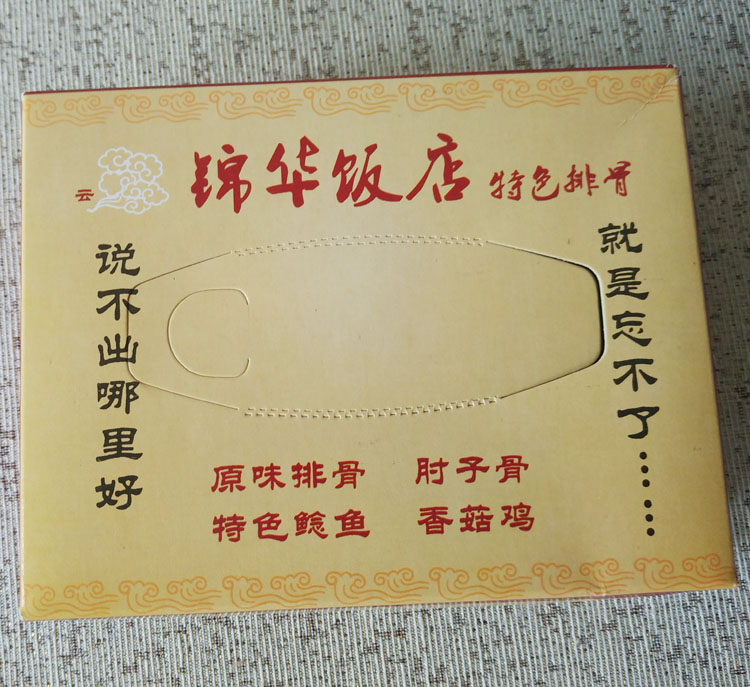 云
锦华饭店 特色排骨
说不出哪里好
就是忘不了……
原味排骨 肘子骨
特色鲶鱼 香菇鸡